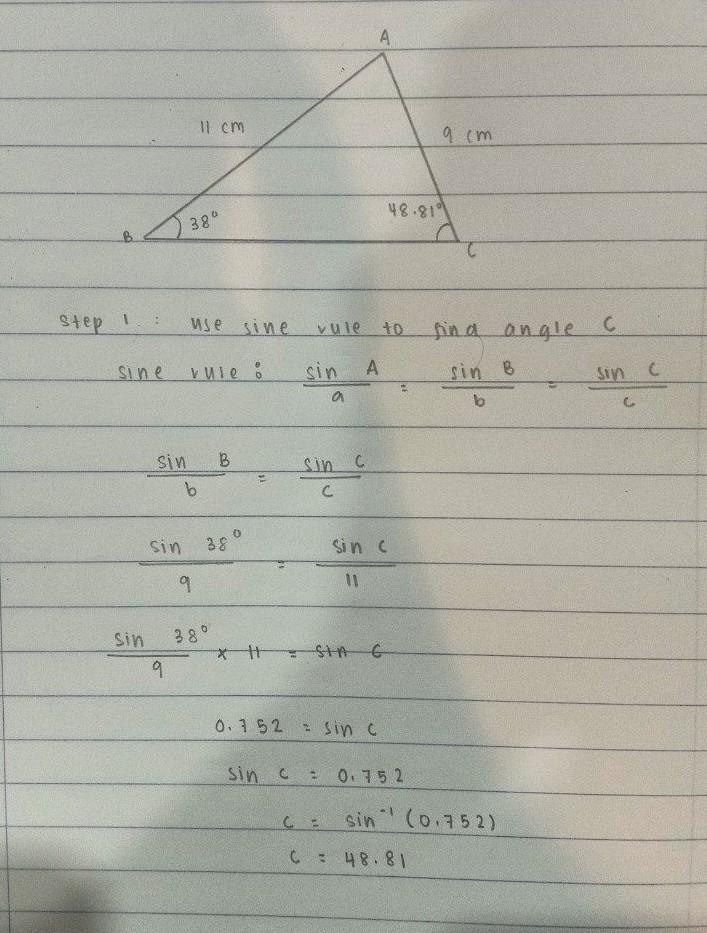 A
11 cm
9 cm
38°
48.81°
B
C
step 1 : use sine rule to find angle C
sine rule : sin A / a = sin B / b = sin C / c
sin B / b = sin C / c
sin 38° / 9 = sin C / 11
sin 38° / 9 × 11 = sin C
0.752 = sin C
sin C = 0.752
C = sin⁻¹ (0.752)
C = 48.81